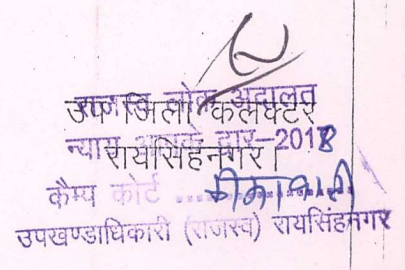 राजस्व लोक अदालत
उप जिला कलक्टर
न्याय आपके द्वार-2018
रायसिंहनगर।
कैम्प कोर्ट
उपखण्डाधिकारी (राजस्व) रायसिंहनगर